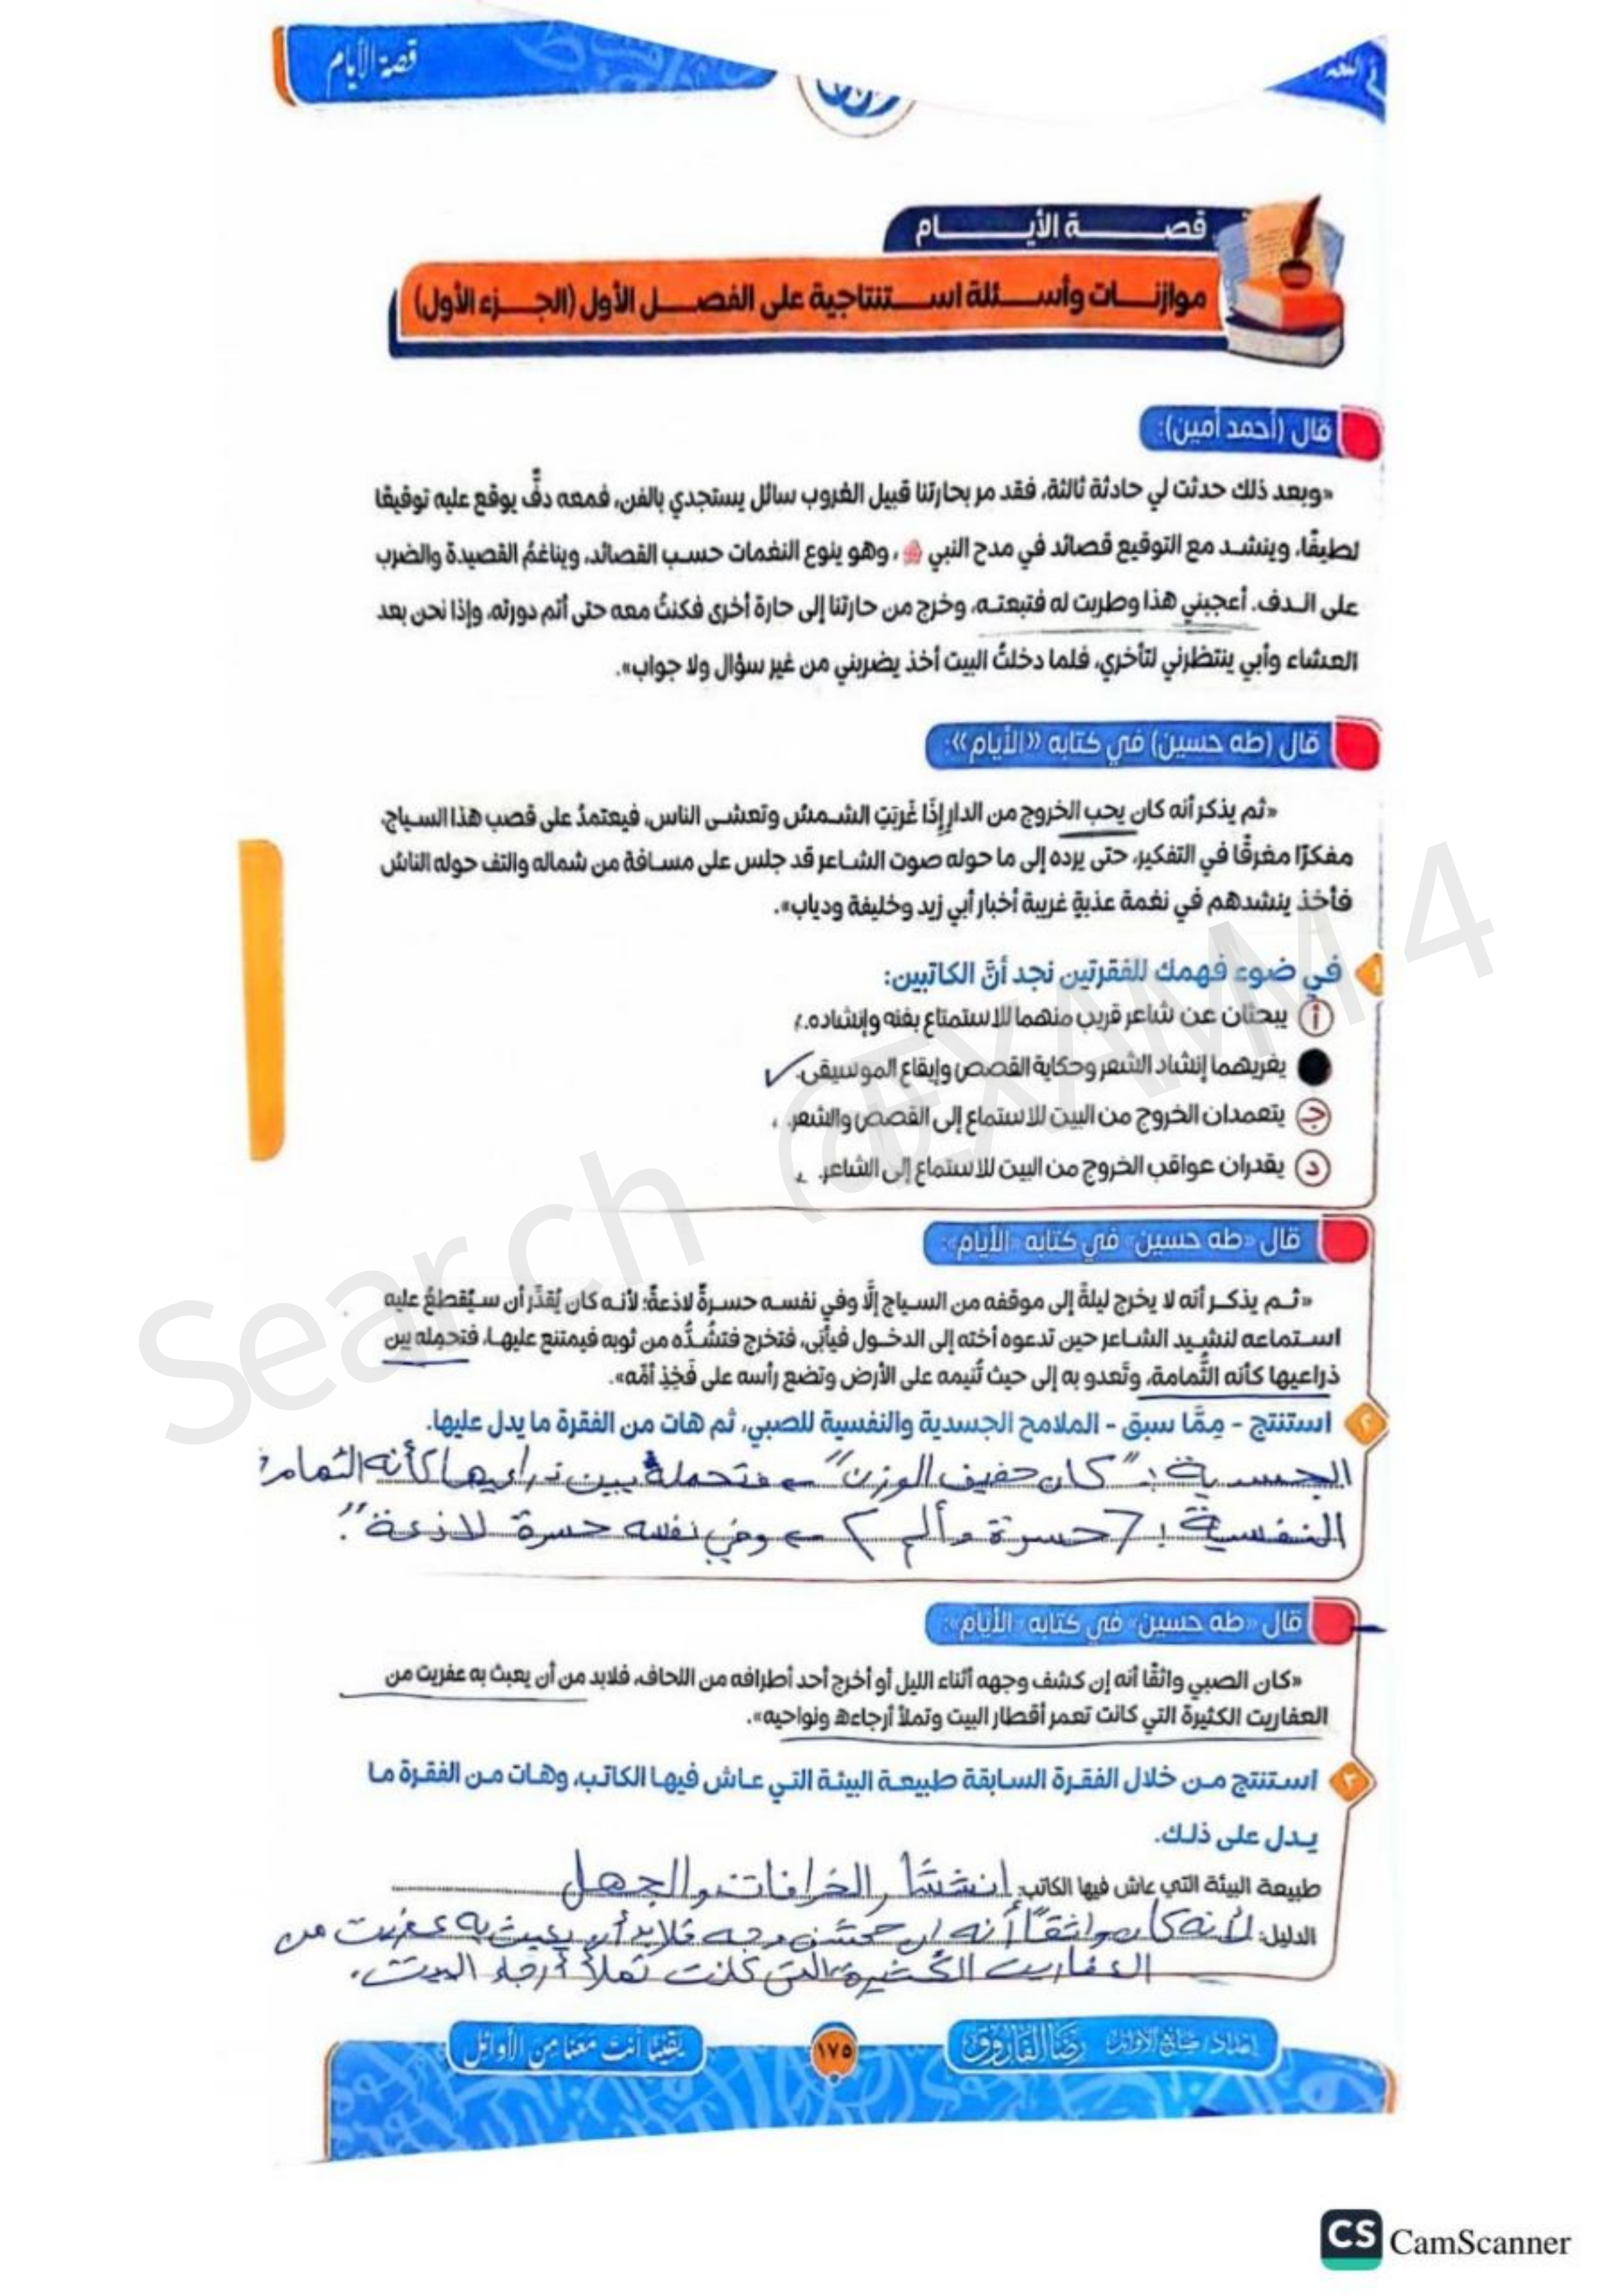 قصة الأيام
قصة الأيام
موازنات وأسئلة استنتاجية على الفصل الأول (الجزء الأول)
قال (أحمد أمين):
«وبعد ذلك حدثت لي حادثة ثالثة، فقد مر بحارتنا قبيل الغروب سائل يستجدي بالفن، فمعه دفٌّ يوقع عليه توقيعًا
لطيفًا، وينشد مع التوقيع قصائد في مدح النبي ﷺ، وهو ينوع النغمات حسب القصائد، ويناغمُ القصيدة والضرب
على الدف. أعجبني هذا وطربت له فتبعته، وخرج من حارتنا إلى حارة أخرى فكنتُ معه حتى أتم دورته، وإذا نحن بعد
العشاء وأبي ينتظرني لتأخري، فلما دخلتُ البيت أخذ يضربني من غير سؤال ولا جواب».
قال (طه حسين) في كتابه «الأيام»:
«ثم يذكر أنه كان يحب الخروج من الدار إذَا غَرَبَتِ الشمسُ وتعشى الناس، فيعتمدُ على قصب هذا السياج،
مفكرًا مغرقًا في التفكير، حتى يرده إلى ما حوله صوت الشاعر قد جلس على مسافة من شماله والتف حوله الناسُ
فأخذ ينشدهم في نغمة عذبةٍ غريبة أخبار أبي زيد وخليفة ودياب».
١ في ضوء فهمك للفقرتين نجد أنَّ الكاتبين:
أ يبحثان عن شاعر قريب منهما للاستمتاع بفنه وإنشاده.
يغريهما إنشاد الشعر وحكاية القصص وإيقاع الموسيقى.
ج يتعمدان الخروج من البيت للاستماع إلى القصص والشعر.
د يقدران عواقب الخروج من البيت للاستماع إلى الشاعر.
قال «طه حسين» في كتابه «الأيام»:
«ثم يذكر أنه لا يخرج ليلةً إلى موقفه من السياج إلَّا وفي نفسه حسرةٌ لاذعةٌ؛ لأنه كان يُقدِّر أن سيُقطعُ عليه
استماعه لنشيد الشاعر حين تدعوه أخته إلى الدخول فيأبى، فتخرج فتشُدُّه من ثوبه فيمتنع عليها، فتحمله بين
ذراعيها كأنه الثُّمامة، وتَعدو به إلى حيث تُنيمه على الأرض وتضع رأسه على فَخِذِ أمِّه».
٢ استنتج - مِمَّا سبق - الملامح الجسدية والنفسية للصبي، ثم هات من الفقرة ما يدل عليها.
الجسدية: "كان خفيف الوزن" ← فتحمله بين ذراعيها كأنه الثمامة
النفسية: (حسرة وألم) ← وفي نفسه حسرة لاذعة".
قال «طه حسين» في كتابه «الأيام»:
«كان الصبي واثقًا أنه إن كشف وجهه أثناء الليل أو أخرج أحد أطرافه من اللحاف، فلابد من أن يعبث به عفريت من
العفاريت الكثيرة التي كانت تعمر أقطار البيت وتملأ أرجاءه ونواحيه».
٣ استنتج من خلال الفقرة السابقة طبيعة البيئة التي عاش فيها الكاتب، وهات من الفقرة ما
يدل على ذلك.
طبيعة البيئة التي عاش فيها الكاتب: انتشار الخرافات والجهل
الدليل: لأنه كان واثقًا أنه إن كشف وجهه فلابد أن يعبث به عفريت من
العفاريت الكثيرة التي كانت تملأ أرجاء البيت.
إعداد/ صانع الأوائل رضا الفاروق
١٧٥
يقينًا أنت معنا من الأوائل
Search @EXAMM 4
CS CamScanner